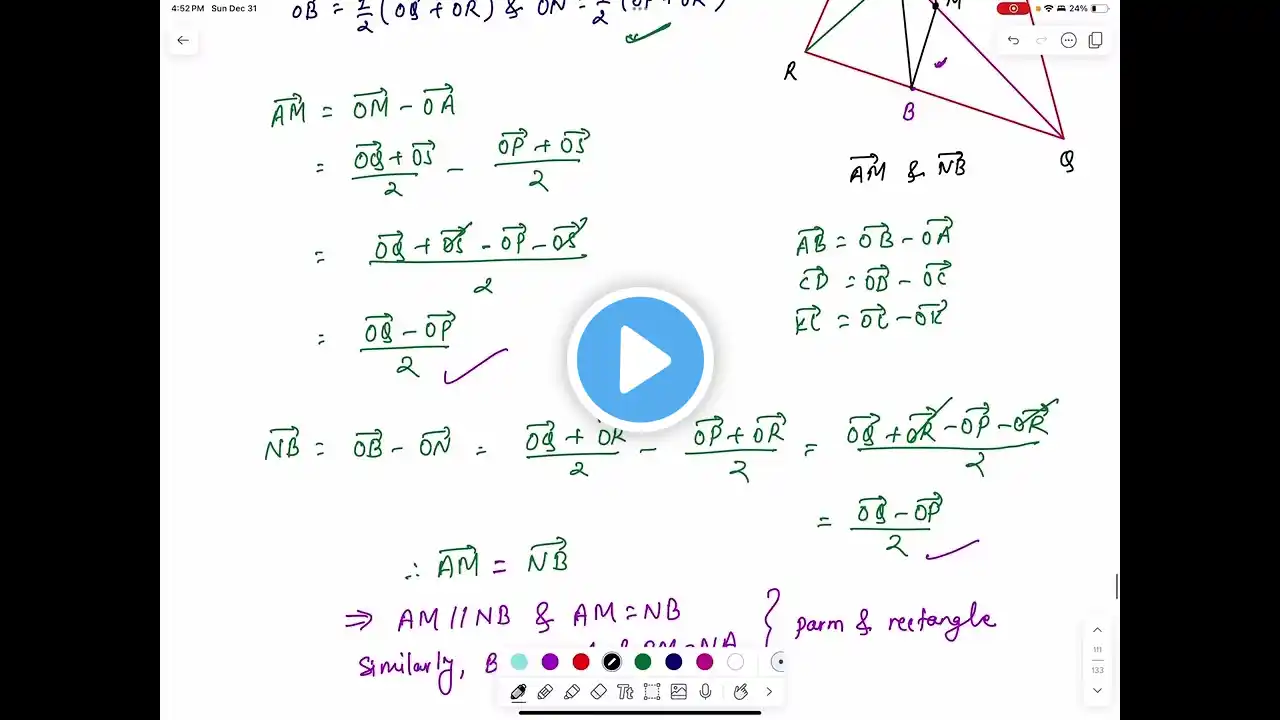 4:52 PM Sun Dec 31
24%
OB = 1/2 (OQ + OR) & ON = 1/2 (OP + OR)
M
R
B
Q
AM⃗ & NB⃗
AM⃗ = OM⃗ − OA⃗
= (OQ⃗ + OS⃗)/2 − (OP⃗ + OS⃗)/2
= (OQ⃗ + OS⃗ − OP⃗ − OS⃗)/2
= (OQ⃗ − OP⃗)/2
AB⃗ = OB⃗ − OA⃗
CD⃗ = OD⃗ − OC⃗
KC⃗ = OC⃗ − OK⃗
NB⃗ = OB⃗ − ON⃗ = (OQ⃗ + OR⃗)/2 − (OP⃗ + OR⃗)/2 = (OQ⃗ + OR⃗ − OP⃗ − OR⃗)/2
= (OQ⃗ − OP⃗)/2
∴ AM⃗ = NB⃗
⇒ AM // NB & AM = NB } parm & rectangle
Similarly, B
Tt
111
133